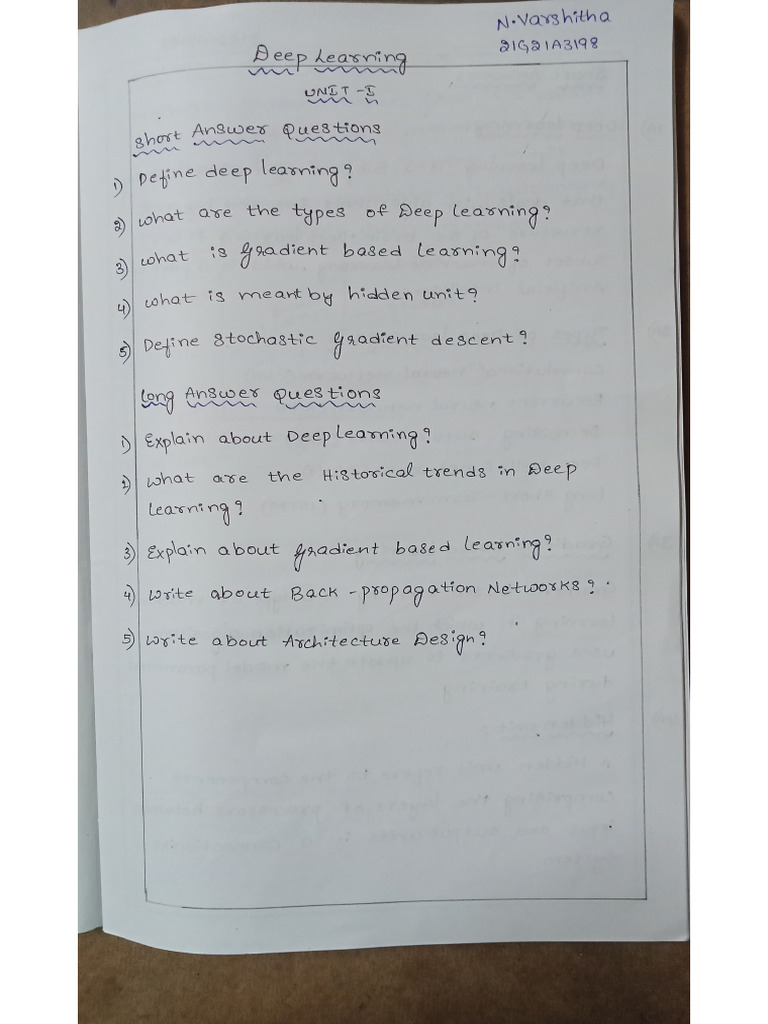 N. Varshitha
21G21A3198
Deep Learning
UNIT - I
Short Answer Questions
1) Define deep learning?
2) What are the types of Deep learning?
3) What is gradient based learning?
4) What is meant by hidden unit?
5) Define Stochastic gradient descent?
Long Answer Questions
1) Explain about Deep Learning?
2) What are the Historical trends in Deep
Learning?
3) Explain about gradient based learning?
4) Write about Back - propagation Networks?
5) Write about Architecture Design?